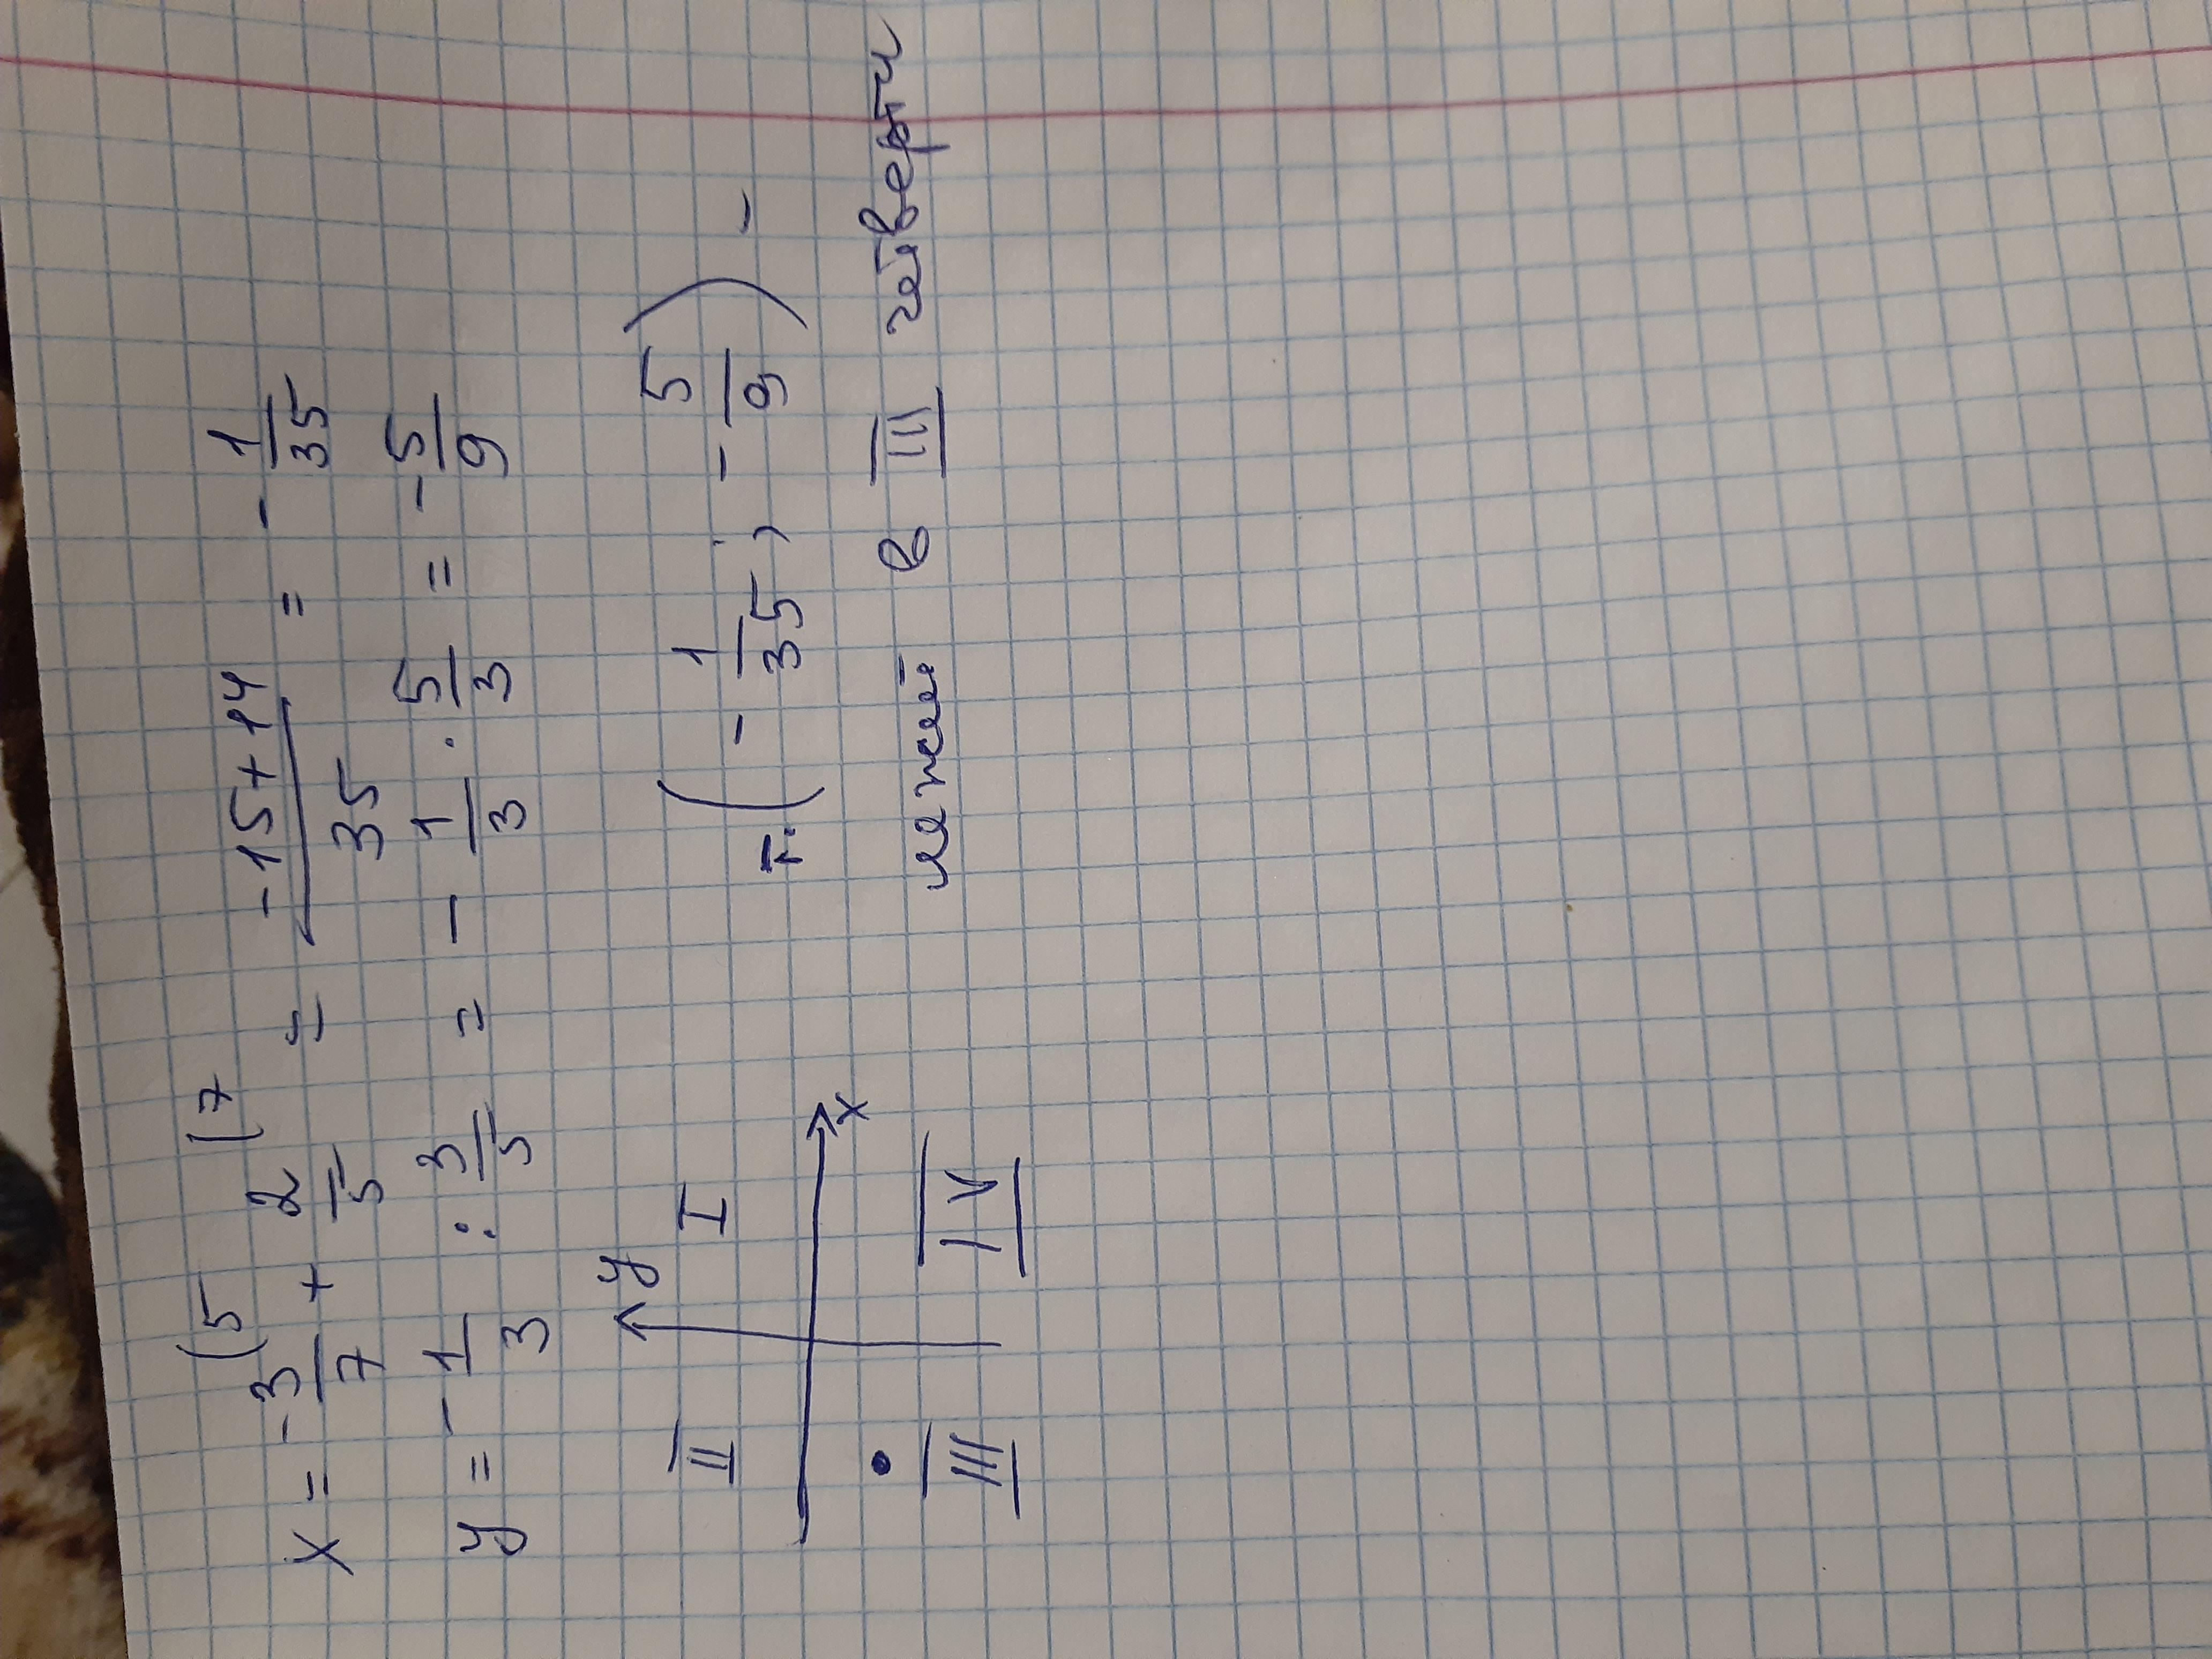 x = -3/7 (5 + 2/5 (7 = -15+14/35 = - 1/35
y = - 1/3 : 3/5 = - 1/3 · 5/3 = - 5/9
y
II I
x
III IV
т. (- 1/35 ; - 5/9) -
лежит в III четверти